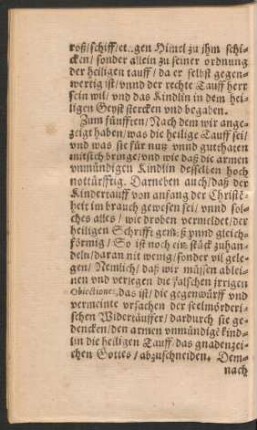 roß/schiff/et..gen Himel zu ihm schi-
cken/ sonder allein zu seiner ordnung
der heiligen tauff/ da er selbst gegen-
wertig ist/ vnnd der rechte Tauff herr
sein wil/ vnd das Kindlin in dem hei-
ligen Geyst stercken vnd begaben.
Zum fünfften/ Nach dem wir ange-
zeigt haben/ was die heilige Tauff sei/
vnd was sie für nutz vnnd gutthaten
mitsich bringe/ vnd wie daß die armen
vnmündigen Kindlin desselben hoch
notturfftig. Darneben auch/ daß der
Kindertauff von anfang der Christē-
heit im brauch gewesen sei/ vnnd sol-
ches alles/ wie droben vermeldet/ der
heiligen Schrifft gemäß vnnd gleich-
förmig/ So ist noch ein stück zuhan-
deln/ daran nit wenig/ sonder vil gele-
gen/ Nemlich/ daß wir müssen ablei-
nen vnd verlegen die falschen irrigen
Obiectiones das ist/ die gegenwürff vnd
vermeinte vrsachen der seelmörderi-
schen Widertäuffer/ dardurch sie ge-
dencken/ den armen vnmündigē kind-
lin die heiligen Tauff das gnadenzei-
chen Gottes/ abzuschneiden. Dem-
nach